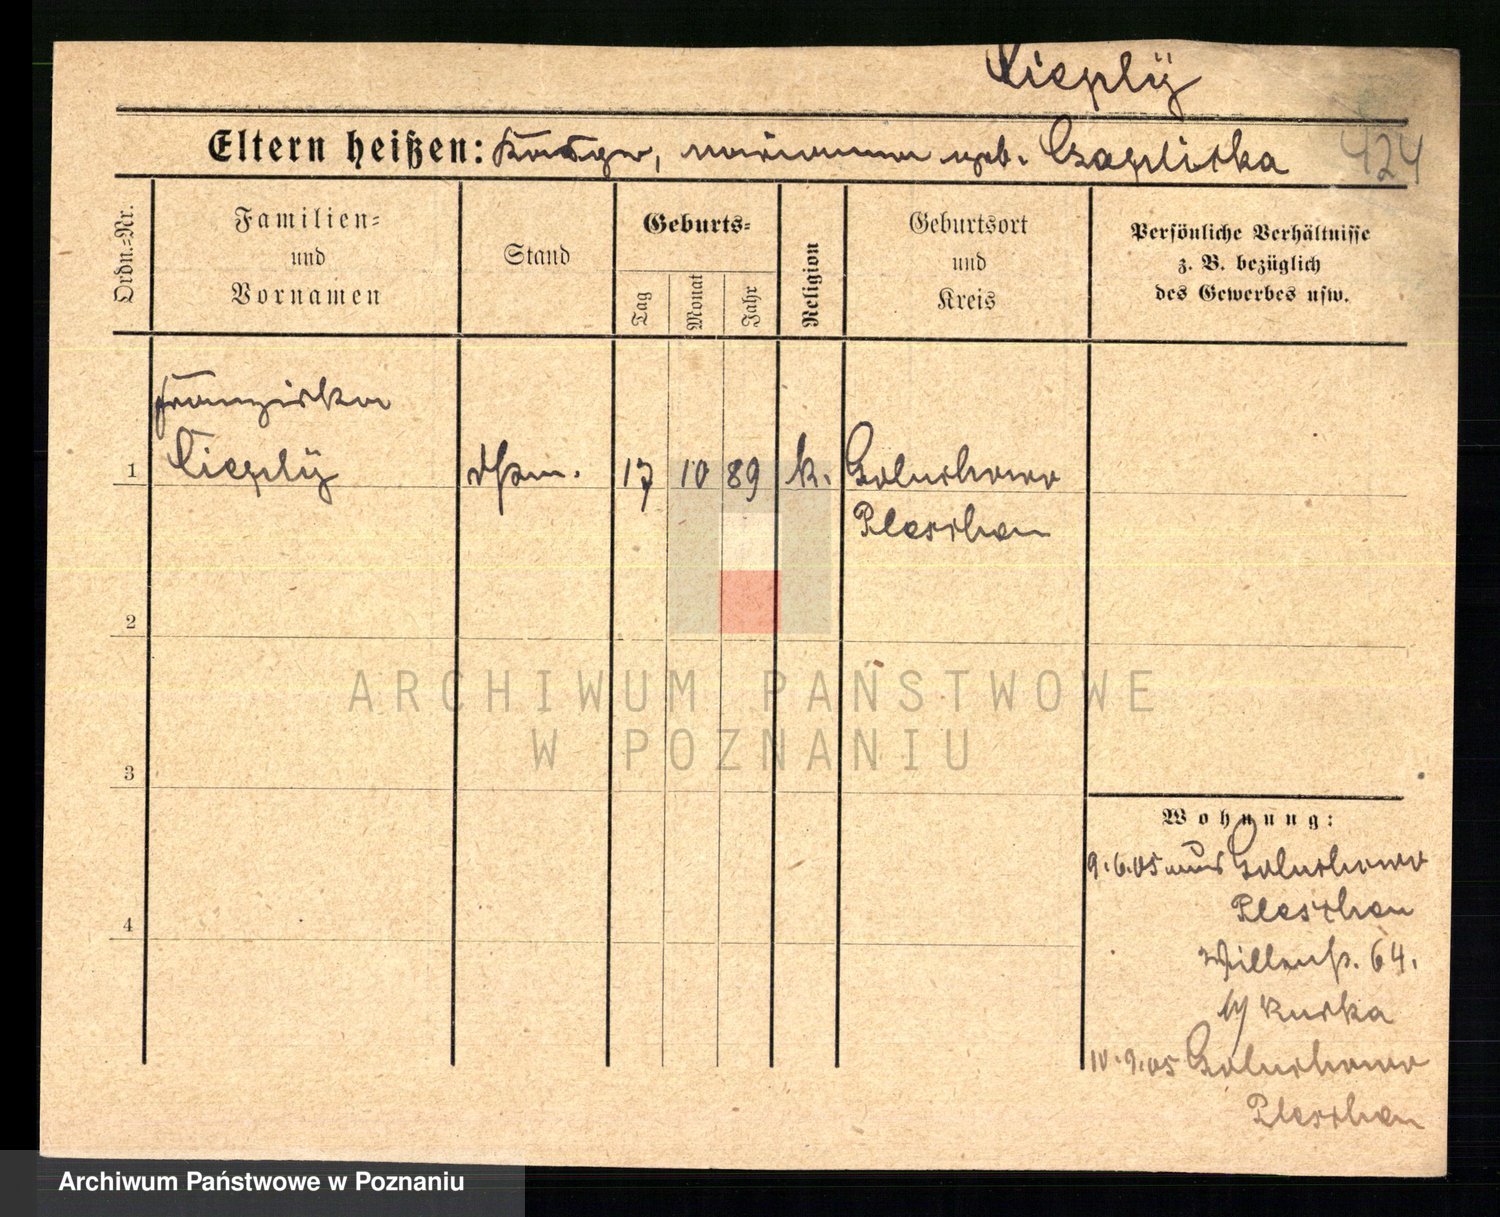 Cieplÿ
424
Eltern heißen: Kasper, Marianna geb. Czaplicka
Ordn.=Nr.
Familien=
und
Vornamen
Stand
Geburts=
Tag
Monat
Jahr
Religion
Geburtsort
und
Kreis
Persönliche Verhältnisse
z. B. bezüglich
des Gewerbes usw.
Franziska
1 Cieplÿ 17 10 89 k. Goluchowo
Pleschen
2
ARCHIWUM PAŃSTWOWE
W POZNANIU
3
Wohnung:
9.6.05 aus Goluchowo
Pleschen
4
64.
b/ Kurka
10.9.05 Goluchowo
Pleschen
Archiwum Państwowe w Poznaniu